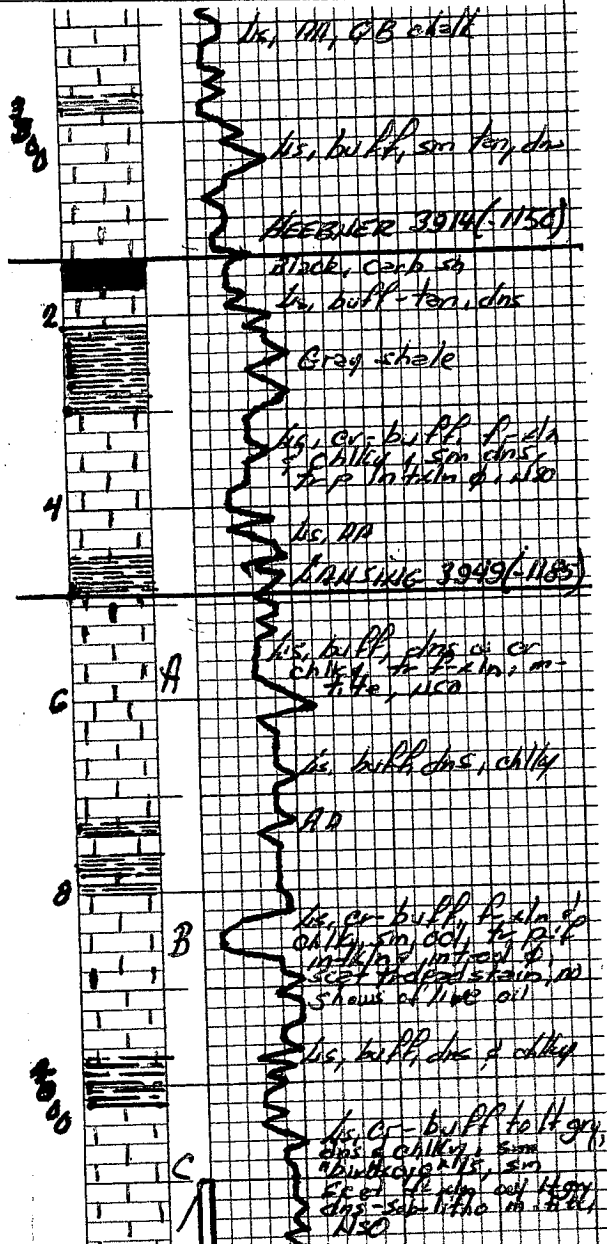 Ls, AA, QB chalk
3900
Ls, buff, sm tan, dns
HEEBNER 3914(-1150)
Black, carb sh
Ls, buff-tan, dns
2
Gray shale
Ls, cr-buff, f-xln
& chlky, sm dns,
tr p intxln φ, NSO
4
Ls, AA
LANSING 3949(-1185)
Ls, buff, dns
chlky, tr f-xln, m-
tite, NSO
A
6
Ls, buff, dns, chlky
AA
8
Ls, cr-buff, f-xln &
chlky, sm ool, tr p-f
intxln & intool φ,
scat tr dead stain, no
shows of live oil
B
Ls, buff, dns & chlky
4000
Ls, cr-buff to lt gry,
dns & chlky, sm
"birdseye" ls, sm
scat f-xln ool lt gry
dns-sub-litho m-tite,
NSO
C